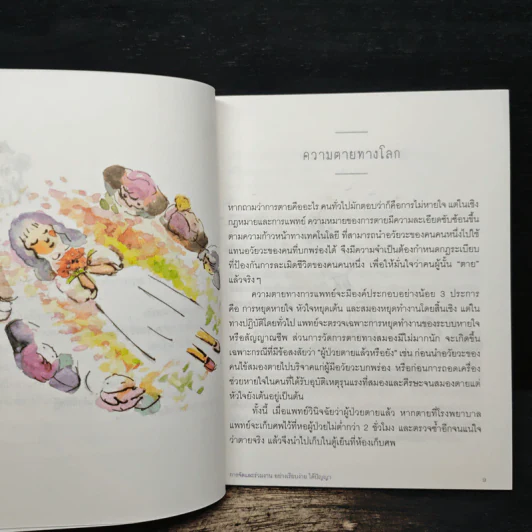 ความตายทางโลก
หากถามว่าการตายคืออะไร คนทั่วไปมักตอบว่าก็คือการไม่หายใจ แต่ในเชิง
กฎหมายและการแพทย์ ความหมายของการตายมีความละเอียดซับซ้อนขึ้น
ตามความก้าวหน้าทางเทคโนโลยี ที่สามารถนำอวัยวะของคนคนหนึ่งไปใช้
แทนอวัยวะของคนที่บกพร่องได้ จึงมีความจำเป็นต้องกำหนดกฎระเบียบ
ที่ป้องกันการละเมิดชีวิตของคนคนหนึ่ง เพื่อให้มั่นใจว่าคนผู้นั้น "ตาย"
แล้วจริงๆ
ความตายทางการแพทย์จะมีองค์ประกอบอย่างน้อย 3 ประการ
คือ การหยุดหายใจ หัวใจหยุดเต้น และสมองหยุดทำงานโดยสิ้นเชิง แต่ใน
ทางปฏิบัติโดยทั่วไป แพทย์จะตรวจเฉพาะการหยุดทำงานของระบบหายใจ
หรือสัญญาณชีพ ส่วนการวัดการตายทางสมองมีไม่มากนัก จะเกิดขึ้น
เฉพาะกรณีที่มีข้อสงสัยว่า "ผู้ป่วยตายแล้วหรือยัง" เช่น ก่อนนำอวัยวะของ
คนไข้สมองตายไปบริจาคแก่ผู้มีอวัยวะบกพร่อง หรือก่อนการถอดเครื่อง
ช่วยหายใจในคนที่ได้รับอุบัติเหตุรุนแรงที่สมองและศีรษะจนสมองตายแต่
หัวใจยังเต้นอยู่เป็นต้น
ทั้งนี้ เมื่อแพทย์วินิจฉัยว่าผู้ป่วยตายแล้ว หากตายที่โรงพยาบาล
แพทย์จะเก็บศพไว้ที่หอผู้ป่วยไม่ต่ำกว่า 2 ชั่วโมง และตรวจซ้ำอีกจนแน่ใจ
ว่าตายจริง แล้วจึงนำไปเก็บในตู้เย็นที่ห้องเก็บศพ
การจัดและร่วมงาน อย่างเรียบง่าย ได้ปัญญา